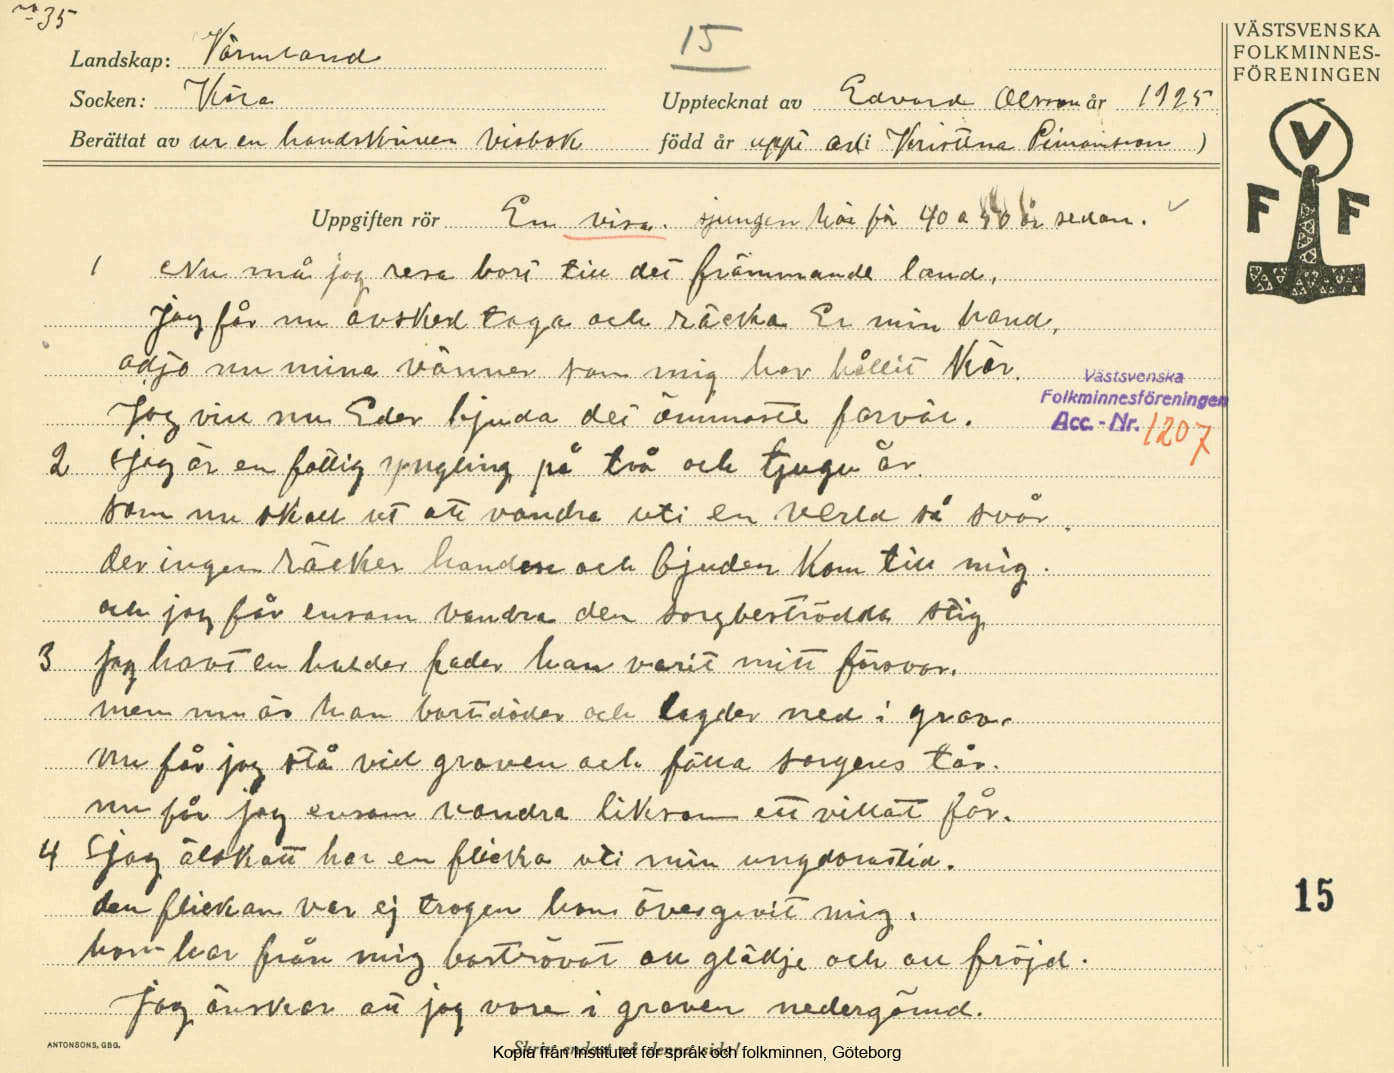 no 35
15
VÄSTSVENSKA
FOLKMINNES-
FÖRENINGEN
Landskap: Värmland
Socken: Köla
Upptecknat av Edvard Olsson år 1925
Berättat av ur en handskriven visbok
född år uppt av (i Kristina Simonsson)
V
F F
Uppgiften rör En visa. sjungen här för 40 a 50 år sedan.
1 Nu må jag resa bort till det främmande land,
jag får nu avsked taga och räcka Er min hand,
adjö nu mina vänner som mig har hållit kär.
Jag vill nu Eder bjuda det ömmaste farväl.
Västsvenska
Folkminnesföreningen
Acc.-Nr. 1207
2 jag är en fattig yngling på två och tjugu år
som nu skall ut att vandra uti en verld så svår.
der ingen räcker handen och bjuder kom till mig.
och jag får ensam vandra den sorgbeströdda stig
3 jag havt en hulder fader han varit mitt försvar.
men nu är han bortdöder och lagder ned i grav.
nu får jag stå vid graven och fälla sorgens tår.
nu får jag ensam vandra liksom ett villatt får.
4 jag älskatt har en flicka uti min ungdomstid.
den flickan var ej trogen hon övergivit mig.
hon har från mig bortrövat all glädje och all fröjd.
Jag önskar att jag vore i graven nedergömd.
15
ANTONSONS, GBG.
Skriv endast på denna sida!
Kopia från Institutet för språk och folkminnen, Göteborg